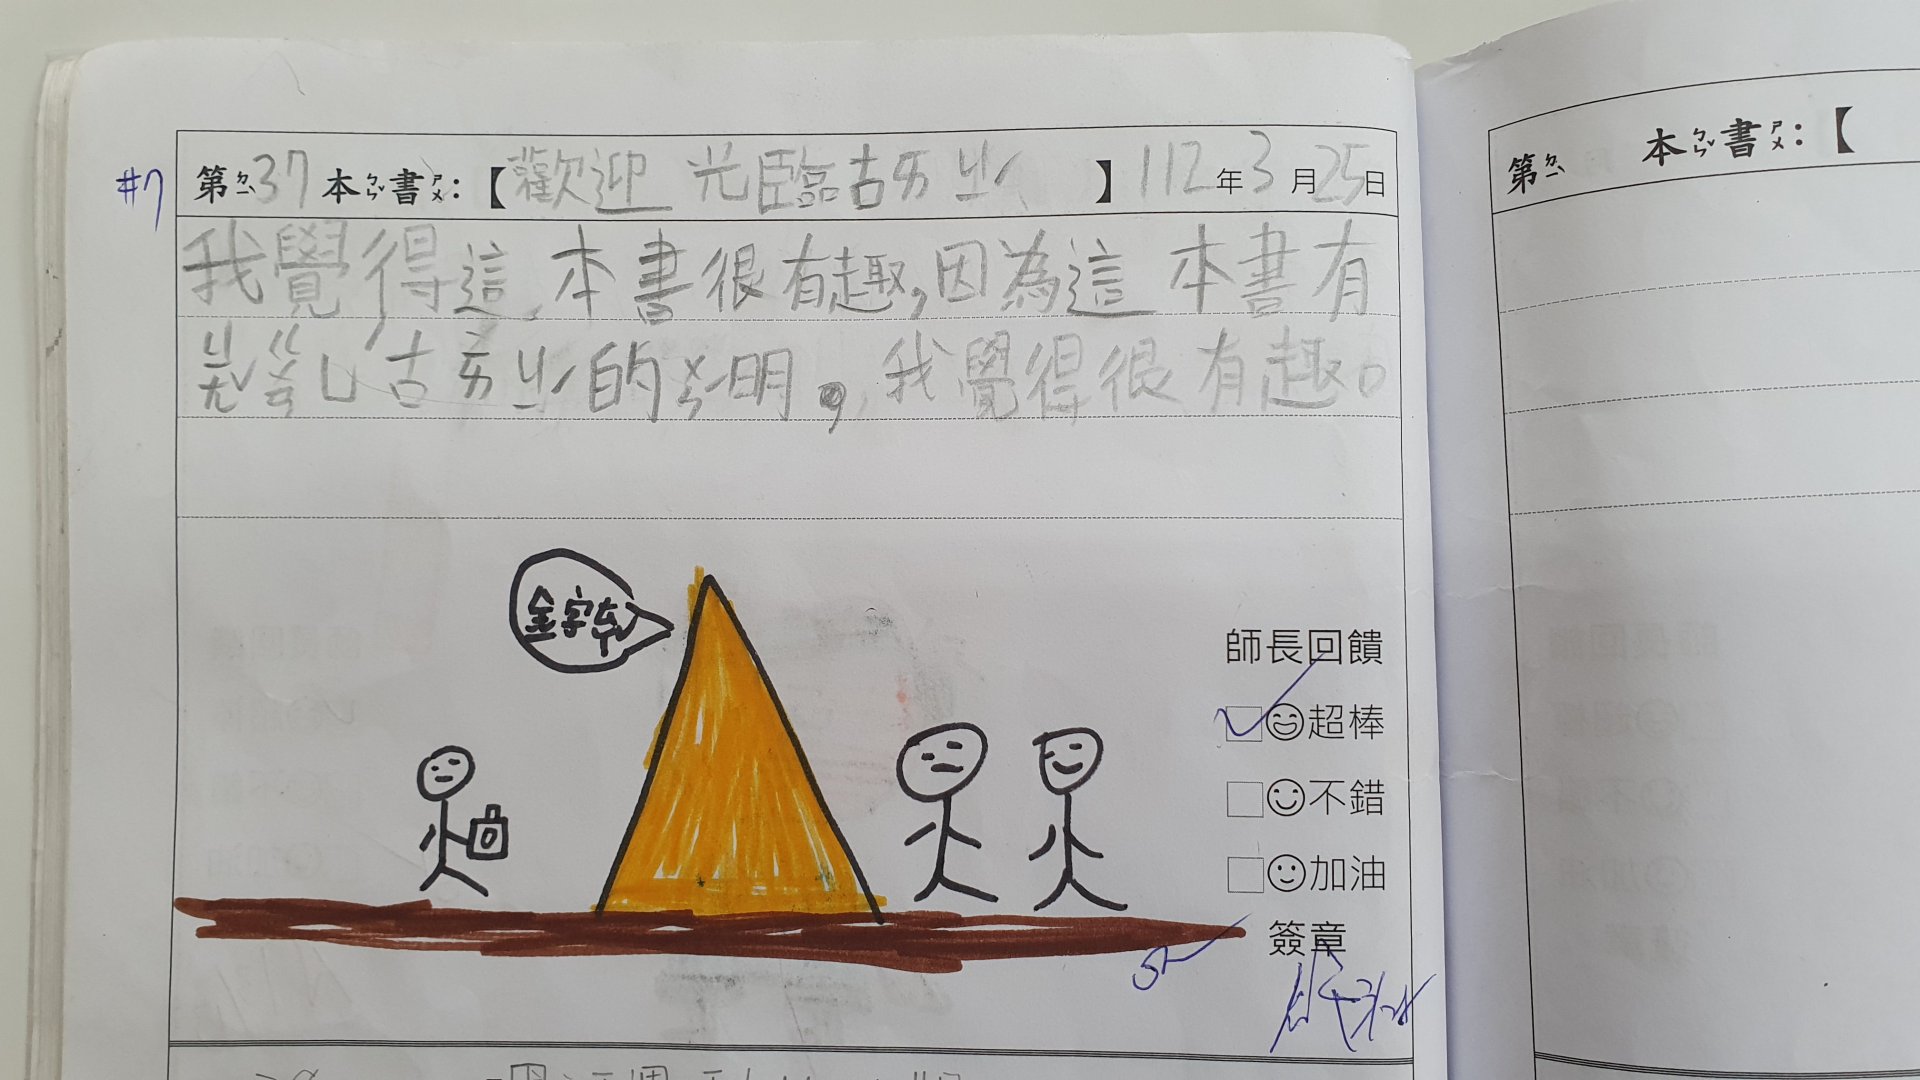 #7
第ㄉㄧˋ37本ㄅㄣˇ書ㄕㄨ：【歡迎光臨古ㄞㄐㄧˊ】112年3月25日
我覺得這本書很有趣,因為這本書有
ㄐㄧㄤˇㄍㄨㄢ ㄩ古ㄞㄐㄧˊ的ㄨㄣˊ明，我覺得很有趣。
金字
師長回饋
超棒
不錯
加油
簽章
第ㄉㄧˋ 本ㄅㄣˇ書ㄕㄨ：【